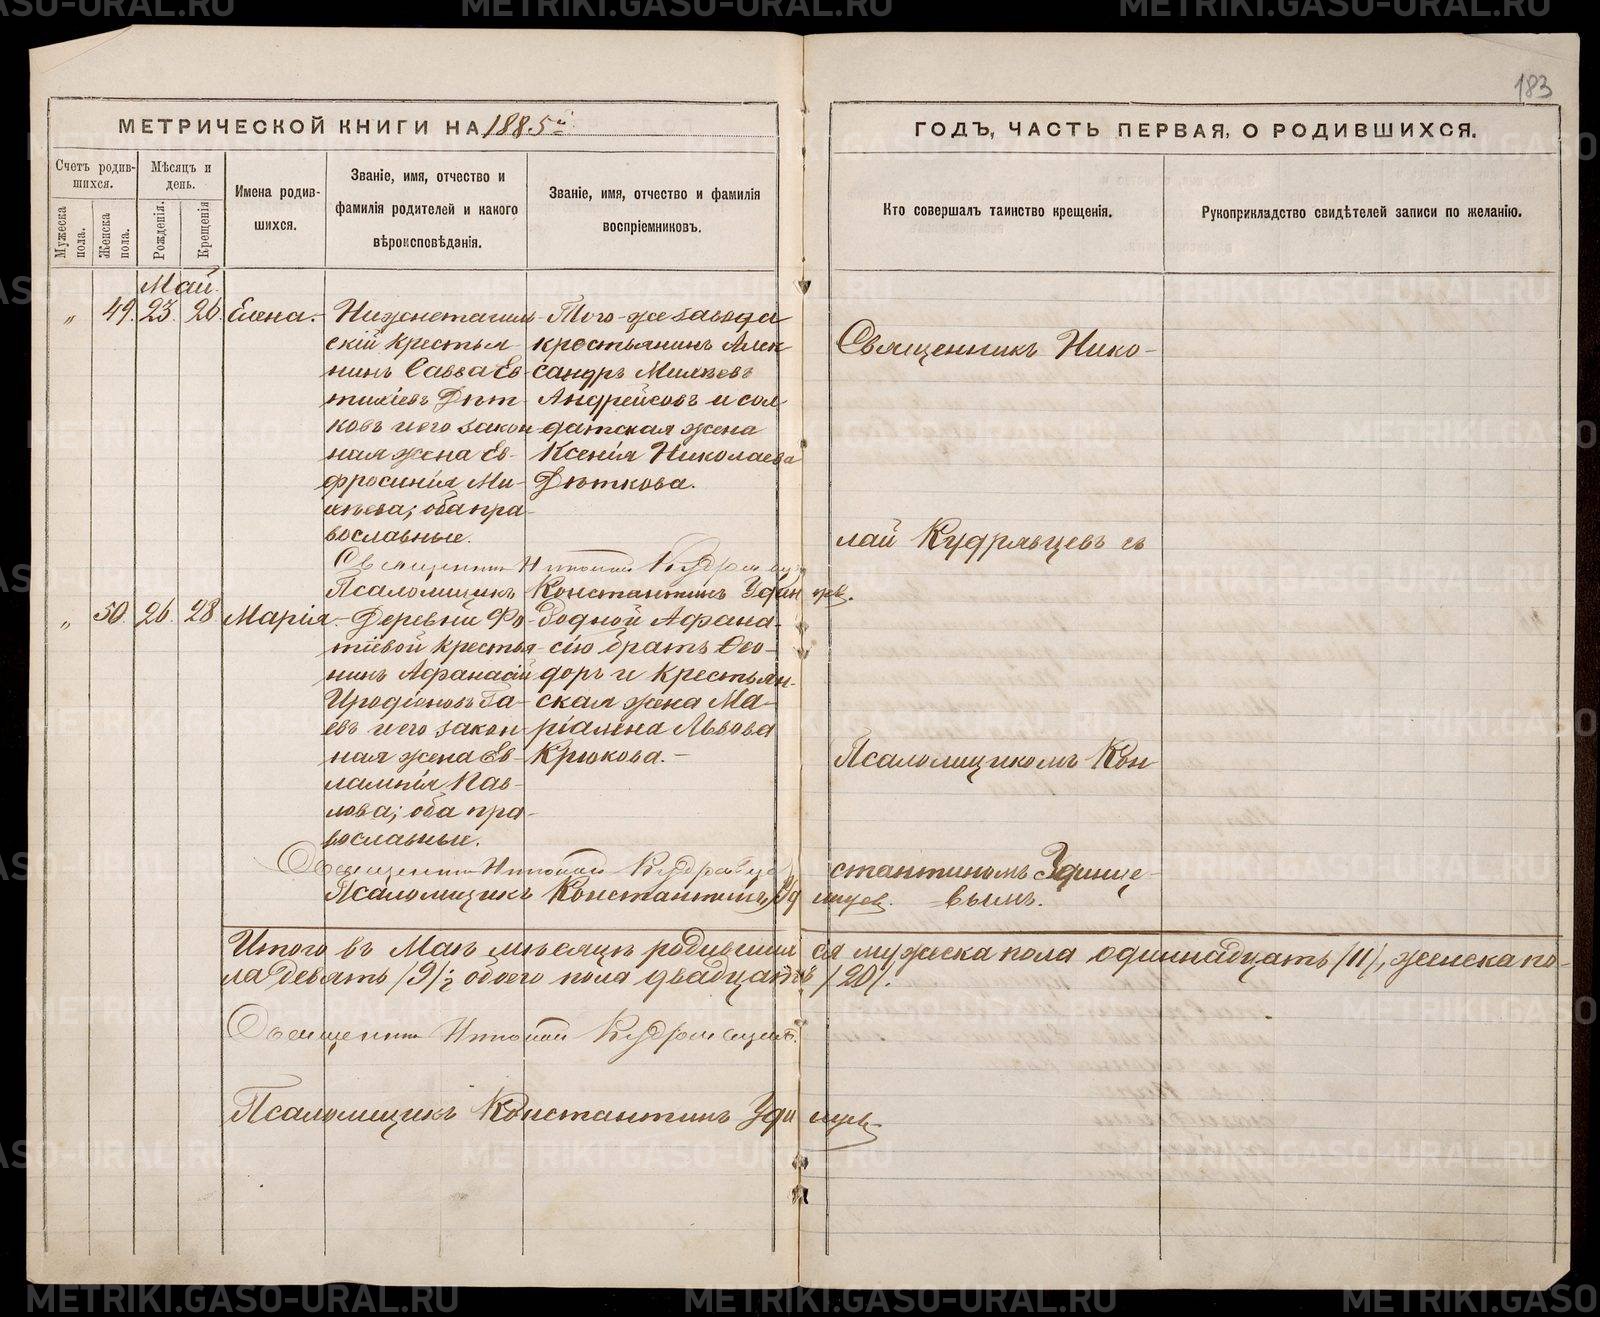 183
МЕТРИЧЕСКОЙ КНИГИ НА 1885й
ГОДЪ, ЧАСТЬ ПЕРВАЯ, О РОДИВШИХСЯ.
Счетъ родив-
шихся.
Мужеска
пола.
Женска
пола.
Мѣсяцъ и
день.
Рожденія.
Крещенія
Имена родив-
шихся.
Званіе, имя, отчество и
фамилія родителей и какого
вѣроисповѣданія.
Званіе, имя, отчество и фамилія
воспріемниковъ.
Кто совершалъ таинство крещенія.
Рукоприкладство свидѣтелей записи по желанію.
Май.
„ 49. 23. 26. Елена.
Нижнетагиль-
скій крестья-
нинъ Савва Ев-
тихіевъ Дѣт-
ковъ и его закон-
ная жена Ев-
фросинія Ми-
хѣева; оба пра-
вославные.
Того-же завода
крестьянинъ Алек-
сандръ Михѣевъ
Андрейковъ и сол-
датская жена
Ксенія Николаева
Дѣткова.
Священникъ Николай Кудрявцевъ
Псаломщикъ Константинъ
„ 50. 26. 28 Марія.
Деревни Фо-
тѣевой крестья-
нинъ Афанасій
Иродіоновъ Га-
евъ и его закон-
ная жена Ев-
лампія Пав-
лова; оба пра-
вославные.
Родной Афана-
сію братъ Ѳео-
доръ и крестьян-
ская жена Ма-
ріамна Львова
Крюкова.
Священникъ Николай Кудрявцевъ
Псаломщикъ Константинъ
Священникъ Нико-
лай Кудрявцевъ съ
Псаломщикомъ Кон-
стантиномъ
вымъ.
Итого въ Маѣ мѣсяцѣ родившихся мужеска пола одиннадцать /11/, женска по-
ла девять /9/; обоего пола двадцать /20/.
Священникъ Николай Кудрявцевъ.
Псаломщикъ Константинъ
METRIKI.GASO-URAL.RU